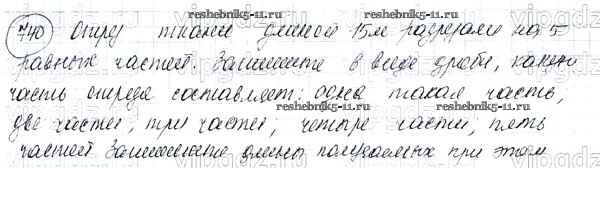 reshebnik5-11.ru reshebnik5-11.ru
740 Отрез ткани длиной 15м разрезали на 5
равных частей. Запишите в виде дроби, какую
часть отреза составляет: одна такая часть,
reshebnik5-11.ru
две части, три части, четыре части, пять
частей. Запишите длины получаемых при этом
reshebnik5-11.ru reshebnik5-11.ru